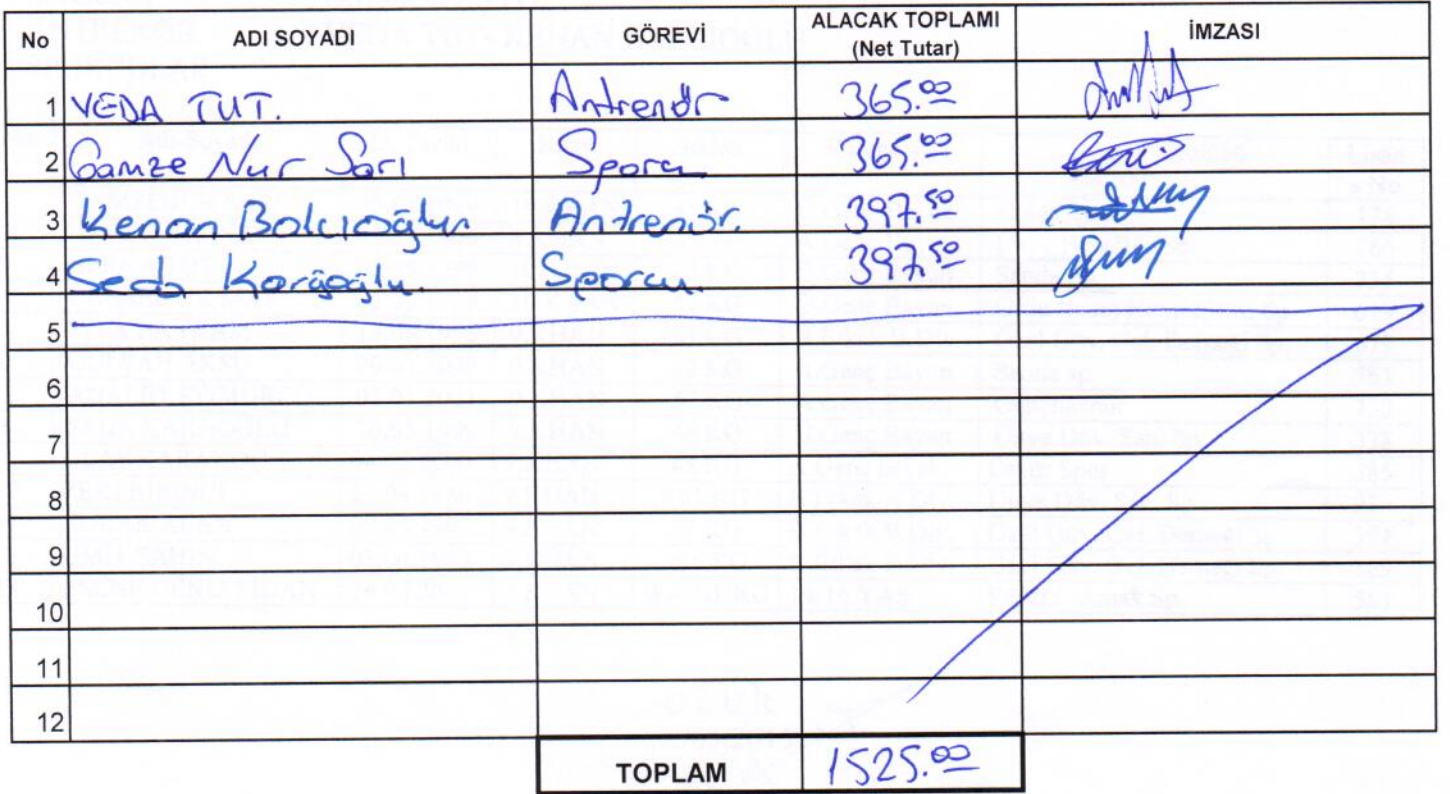 No ADI SOYADI GÖREVİ ALACAK TOPLAMI (Net Tutar) İMZASI
1 VEDA TUT. Antrenör 365.00
2 Gamze Nur Sarı Sporcu 365.00
3 Kenan Balcıoğlu Antrenör. 397.50
4 Seda Sporcu. 397.50
5
6
7
8
9
10
11
12
TOPLAM 1525.00